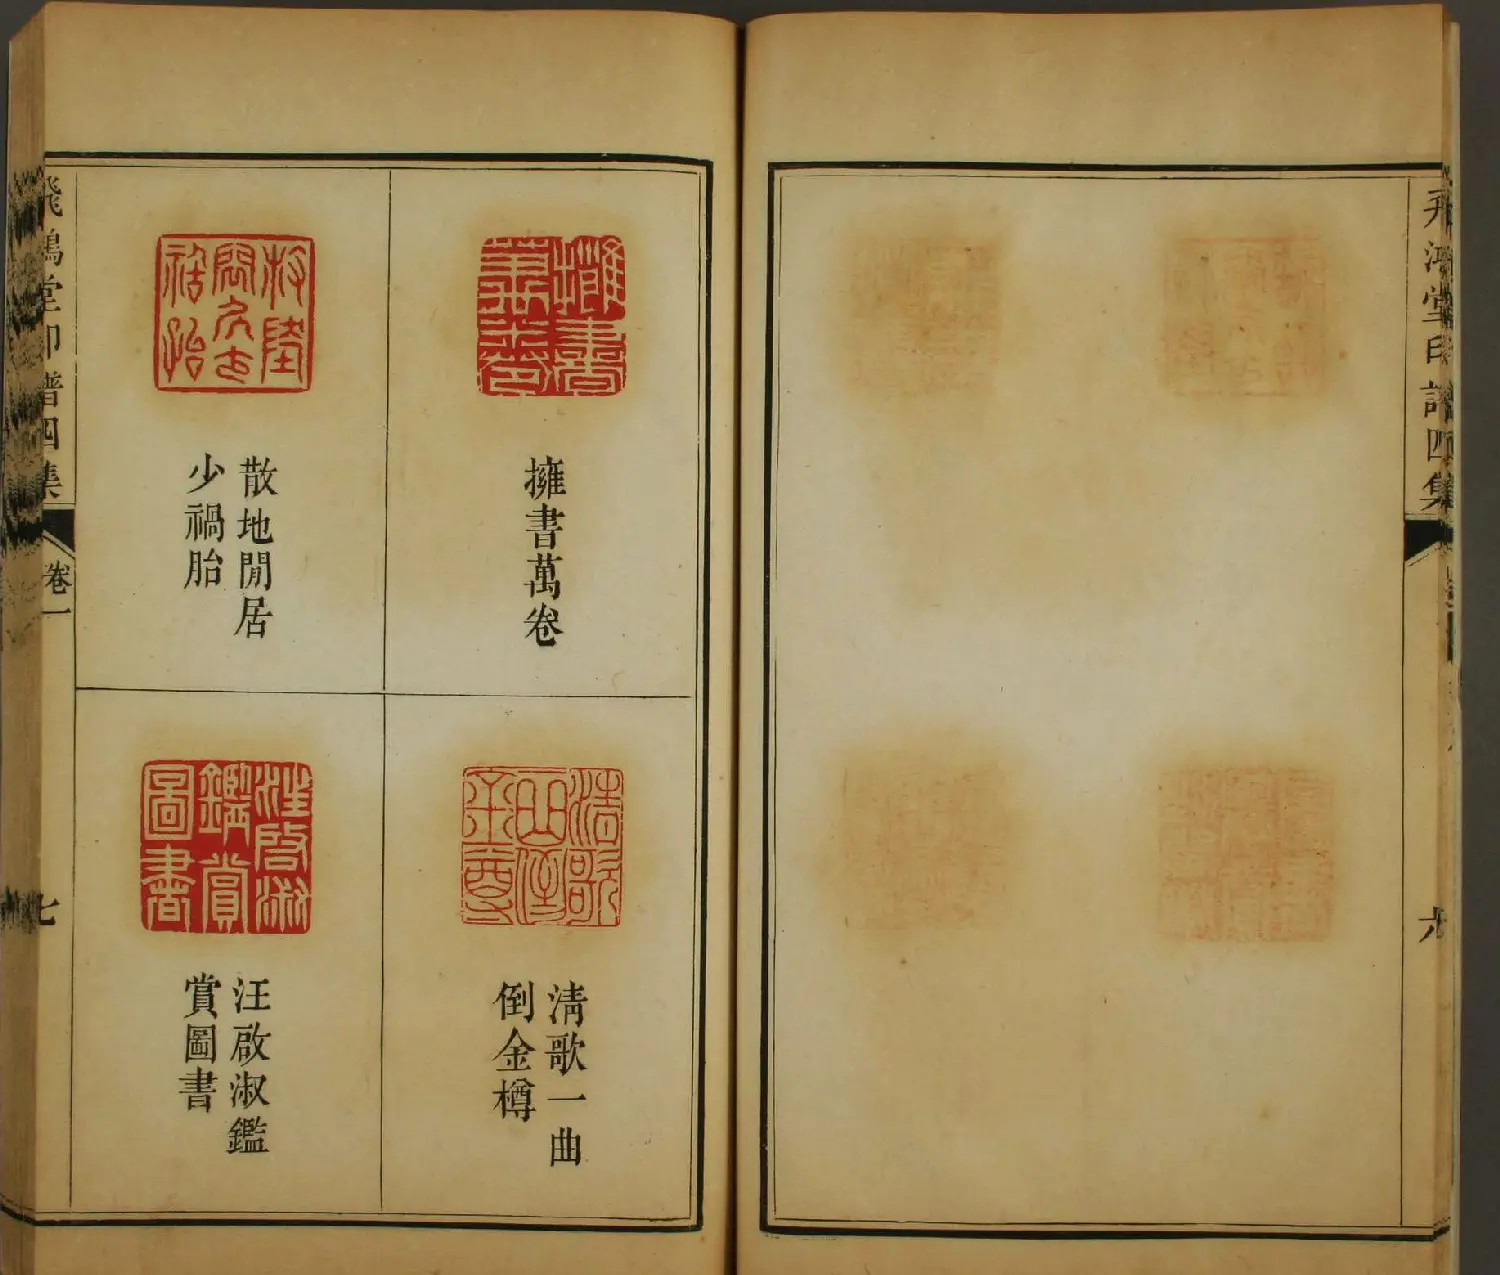 飛鴻堂印譜四集
擁書萬卷
散地閒居
少禍胎
清歌一曲
倒金樽
汪啟淑鑑
賞圖書
飛鴻堂印譜四集
卷一
七